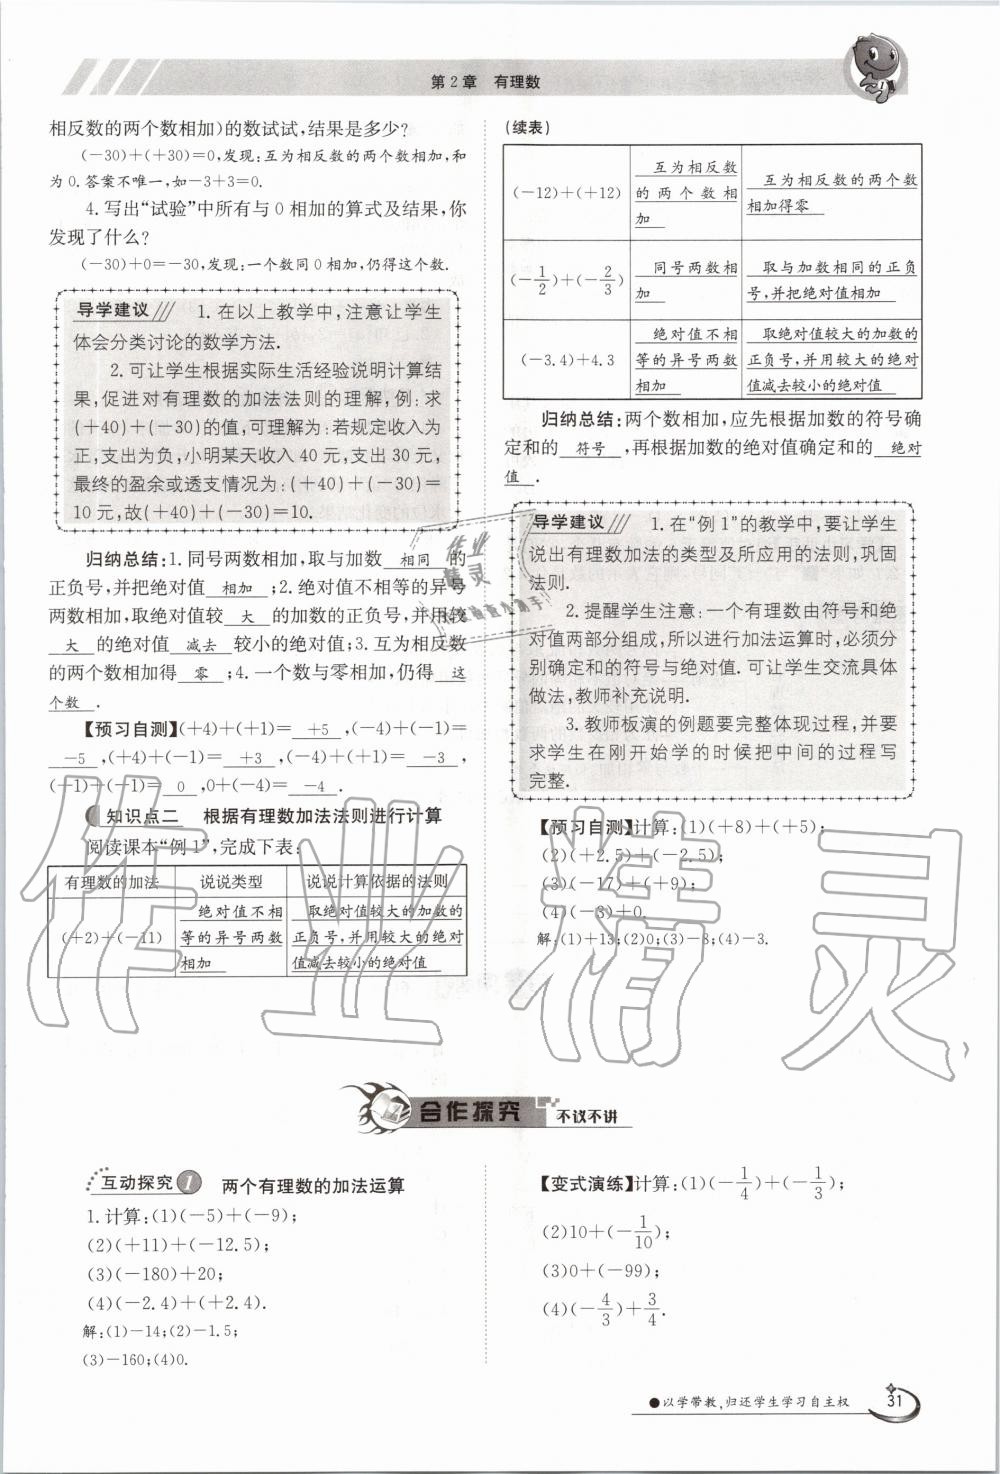 第2章 有理数
相反数的两个数相加)的数试试,结果是多少?
(-30)+(+30)=0,发现:互为相反数的两个数相加,和
为0.答案不唯一,如-3+3=0.
4.写出“试验”中所有与0相加的算式及结果,你
发现了什么?
(-30)+0=-30,发现:一个数同0相加,仍得这个数.
导学建议 1.在以上教学中,注意让学生
体会分类讨论的数学方法.
2.可让学生根据实际生活经验说明计算结
果,促进对有理数的加法法则的理解,例:求
(+40)+(-30)的值,可理解为:若规定收入为
正,支出为负,小明某天收入40元,支出30元,
最终的盈余或透支情况为:(+40)+(-30)=
10元,故(+40)+(-30)=10.
归纳总结:1.同号两数相加,取与加数 相同 的
正负号,并把绝对值 相加 ;2.绝对值不相等的异号
两数相加,取绝对值较 大 的加数的正负号,并用较
大 的绝对值 减去 较小的绝对值;3.互为相反数
的两个数相加得 零 ;4.一个数与零相加,仍得 这
个数 .
【预习自测】(+4)+(+1)= +5 ,(-4)+(-1)=
-5 ,(+4)+(-1)= +3 ,(-4)+(+1)= -3 ,
(-1)+(+1)= 0 ,0+(-4)= -4 .
知识点二 根据有理数加法法则进行计算
阅读课本“例1”,完成下表:
有理数的加法 说说类型 说说计算依据的法则
(+2)+(-11)
绝对值不相
等的异号两数
相加
取绝对值较大的加数的
正负号,并用较大的绝对
值减去较小的绝对值
(续表)
(-12)+(+12)
互为相反数
的两个数相
加
互为相反数的两个数
相加得零
(-1/2)+(-2/3)
同号两数相
加
取与加数相同的正负
号,并把绝对值相加
(-3.4)+4.3
绝对值不相
等的异号两数
相加
取绝对值较大的加数的
正负号,并用较大的绝对
值减去较小的绝对值
归纳总结:两个数相加,应先根据加数的符号确
定和的 符号 ,再根据加数的绝对值确定和的 绝对
值 .
导学建议 1.在“例1”的教学中,要让学生
说出有理数加法的类型及所应用的法则,巩固
法则.
2.提醒学生注意:一个有理数由符号和绝
对值两部分组成,所以进行加法运算时,必须分
别确定和的符号与绝对值.可让学生交流具体
做法,教师补充说明.
3.教师板演的例题要完整体现过程,并要
求学生在刚开始学的时候把中间的过程写
完整.
【预习自测】计算:(1)(+8)+(+5);
(2)(+2.5)+(-2.5);
(3)(-17)+(+9);
(4)(-3)+0.
解:(1)+13;(2)0;(3)-8;(4)-3.
作业精灵
合作探究 不议不讲
互动探究 1 两个有理数的加法运算
1.计算:(1)(-5)+(-9);
(2)(+11)+(-12.5);
(3)(-180)+20;
(4)(-2.4)+(+2.4).
解:(1)-14;(2)-1.5;
(3)-160;(4)0.
【变式演练】计算:(1)(-1/4)+(-1/3);
(2)10+(-1/10);
(3)0+(-99);
(4)(-4/3)+3/4.
●以学带教,归还学生学习自主权 31